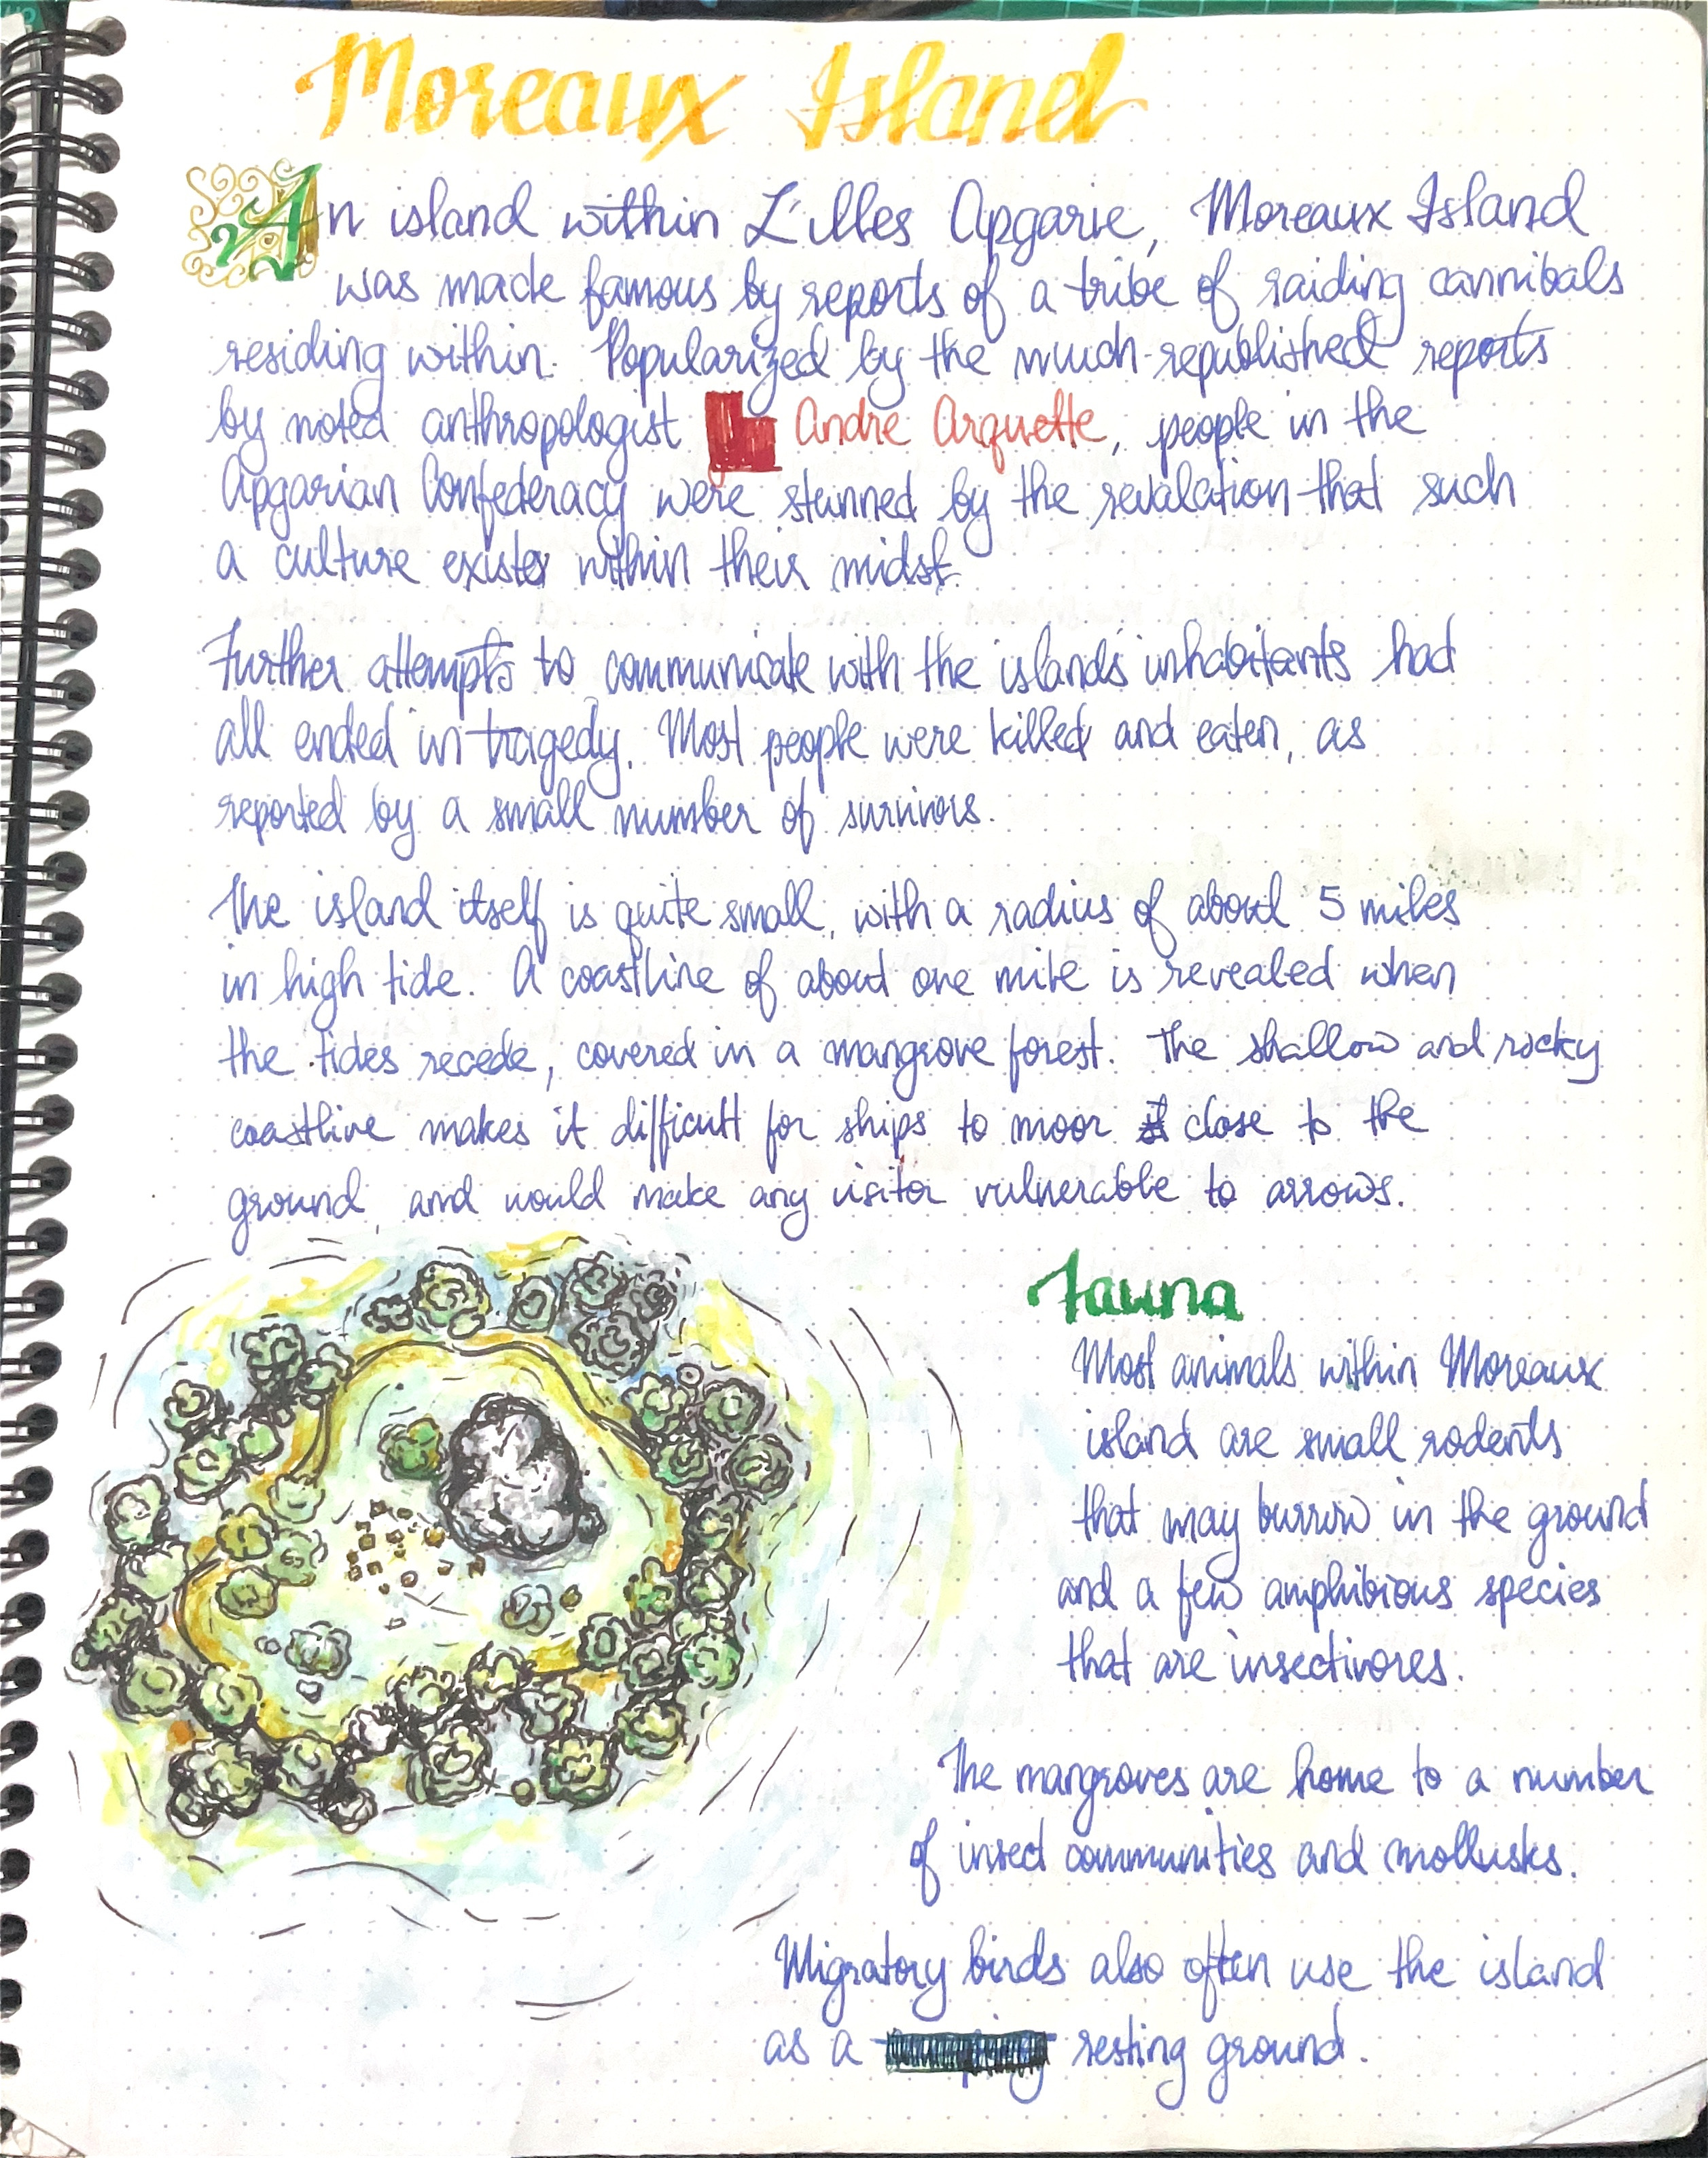 Moreaux Island
An island within L'Illes Apgarie, Moreaux Island
was made famous by reports of a tribe of raiding cannibals
residing within. Popularized by the much-republished reports
by noted anthropologist Andre Arquette, people in the
Apgarian Confederacy were stunned by the revalation that such
a culture exists within their midst.
Further attempts to communicate with the islands' inhabitants had
all ended in tragedy. Most people were killed and eaten, as
reported by a small number of survivors.
The island itself is quite small, with a radius of about 5 miles
in high tide. A coastline of about one mile is revealed when
the tides recede, covered in a mangrove forest. The shallow and rocky
coastline makes it difficult for ships to moor close to the
ground, and would make any visitor vulnerable to arrows.
Fauna
Most animals within Moreaux
island are small rodents
that may burrow in the ground
and a few amphibious species
that are insectivores.
The mangroves are home to a number
of insect communities and mollusks.
Migratory birds also often use the island
as a resting ground.